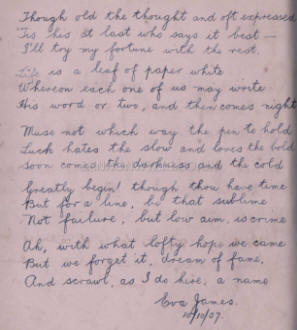 Though old the thought and oft expressed
'Tis his at last who says it best —
I'll try my fortune with the rest.
Life is a leaf of paper white
Whereon each one of us may write
His word or two, and then comes night
Muse not which way the pen to hold
Luck hates the slow and loves the bold
soon comes the darkness and the cold
Greatly begin! though thou have time
But for a line, be that sublime
Not failure, but low aim, is crime
Ah, with what lofty hope we came
But we forget it, dream of fame,
And scrawl, as I do here, a name
Eva James.
10/10/07.